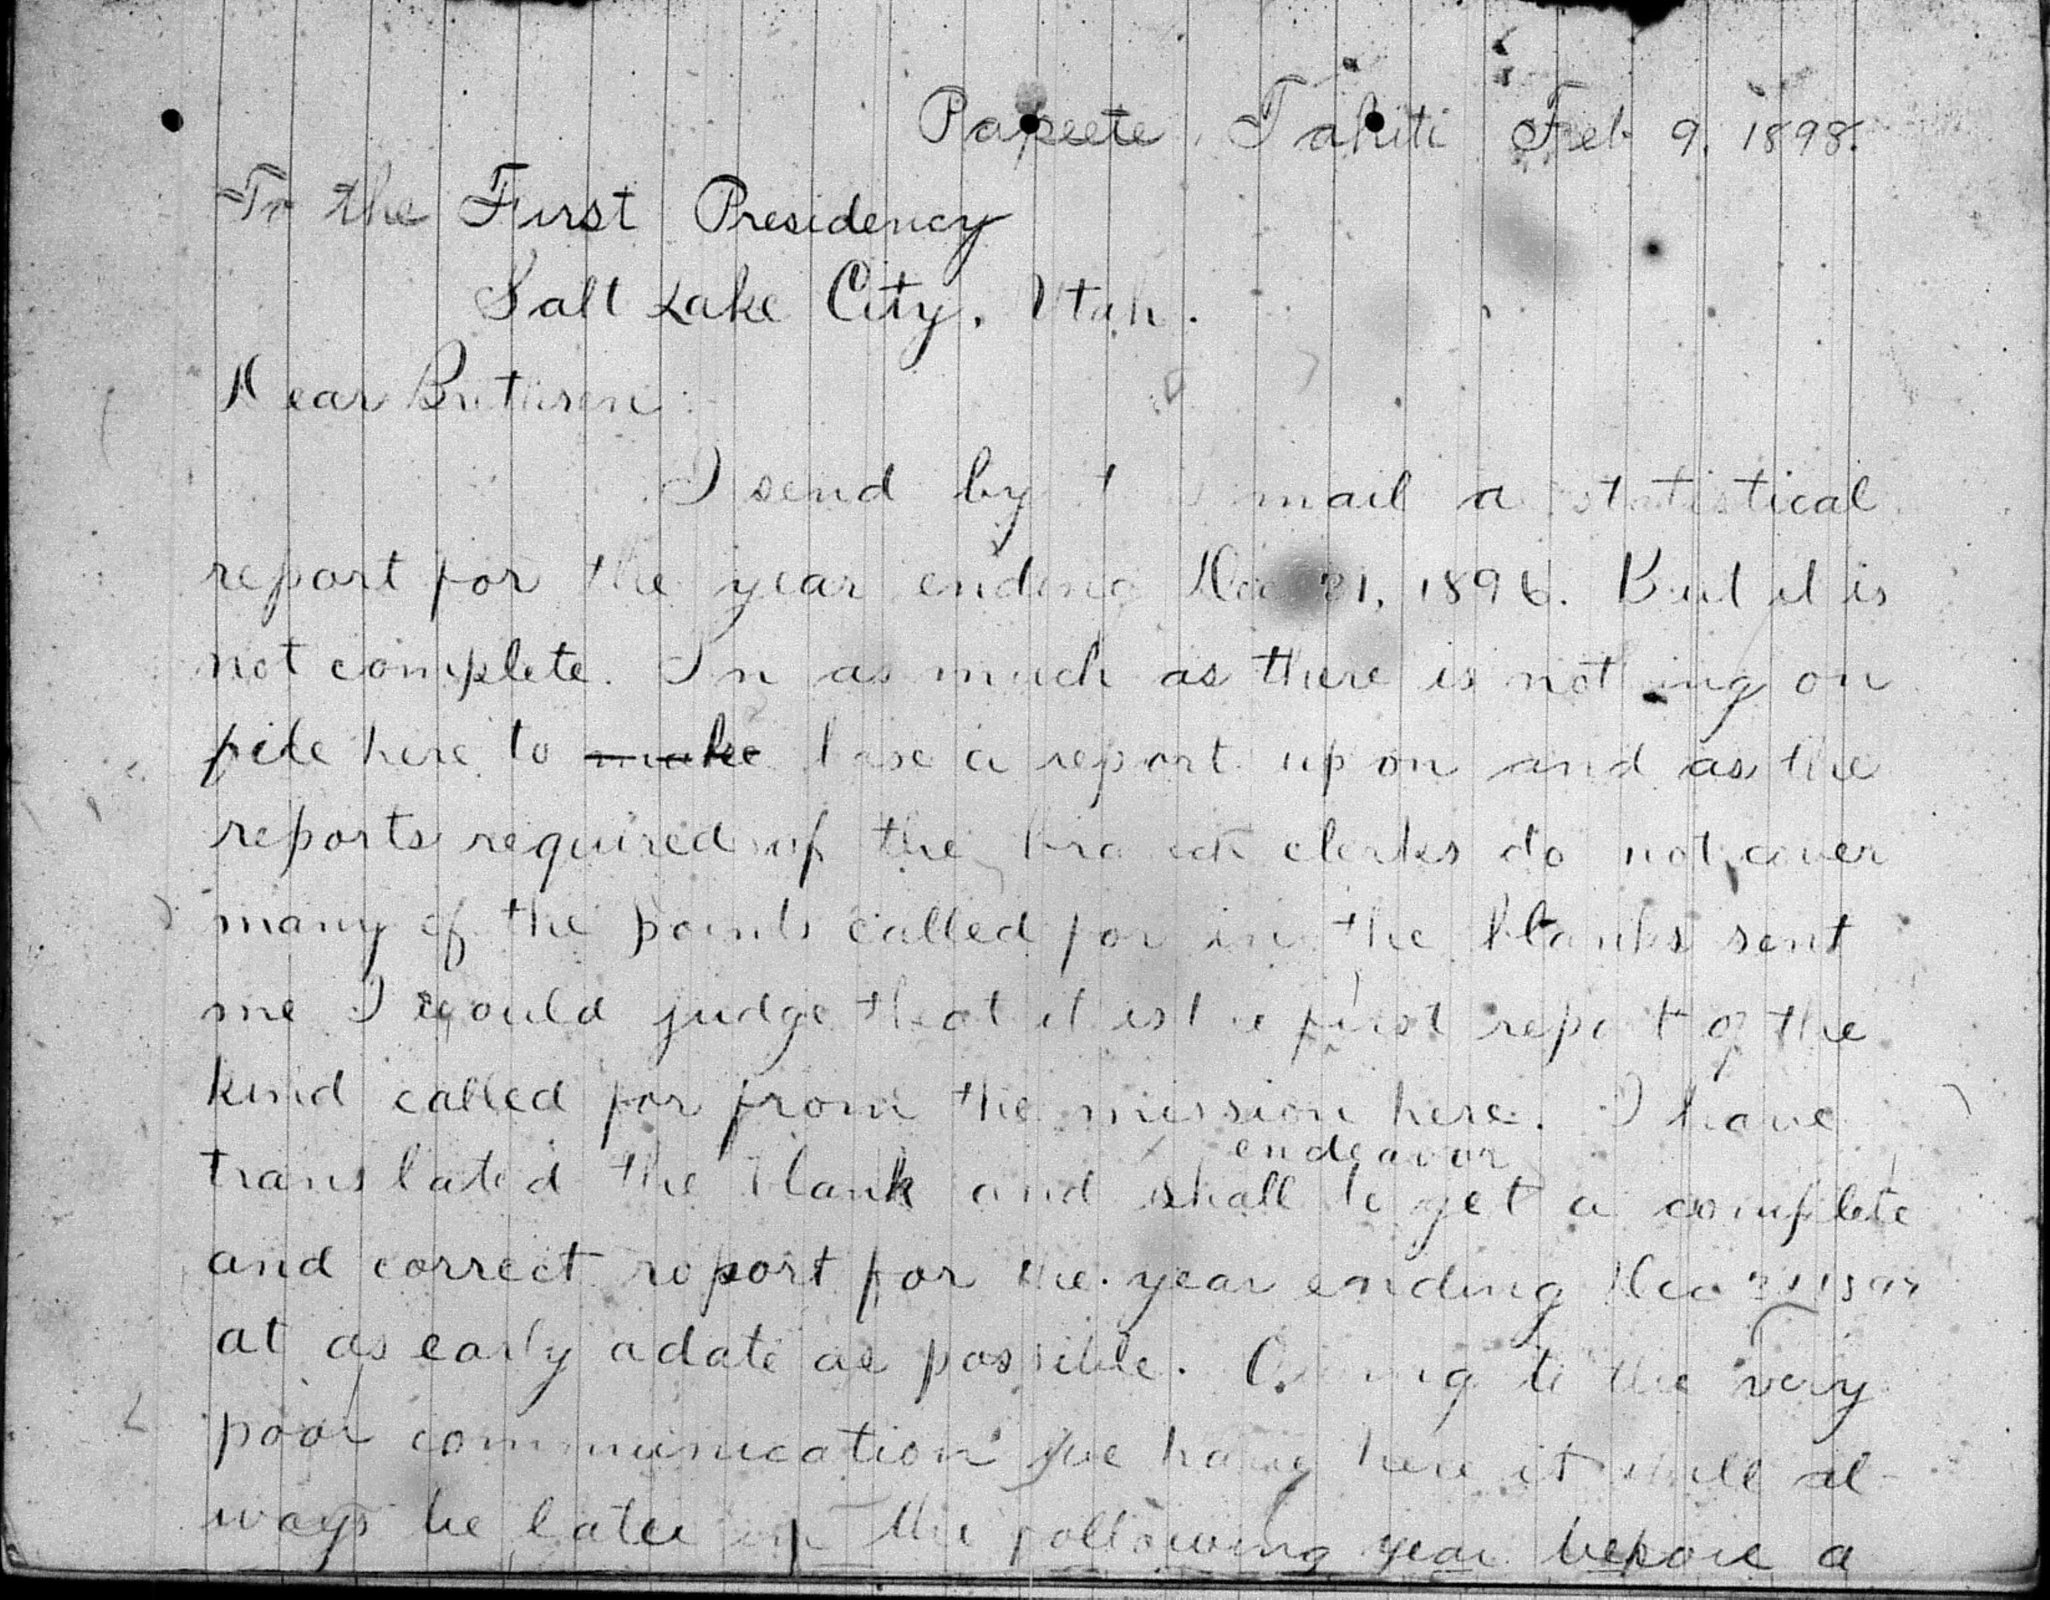 Papeete, Tahiti Feb 9. 1898.
To the First Presidency
Salt Lake City, Utah.
Dear Brethren:
I send by mail a statistical
report for the year ending Dec 31, 1896. But it is
not complete. In as much as there is nothing on
file here to make base a report upon and as the
reports required of the branch clerks do not cover
many of the points called for in the blanks sent
me I would judge that it is the first report of the
kind called for from the mission here. I have
endeavor
translated the blank and shall to get a complete
and correct report for the year ending Dec 31 1897
at as early a date as possible. Owing to the very
poor communication we have here it will al-
ways be late in the following year before a